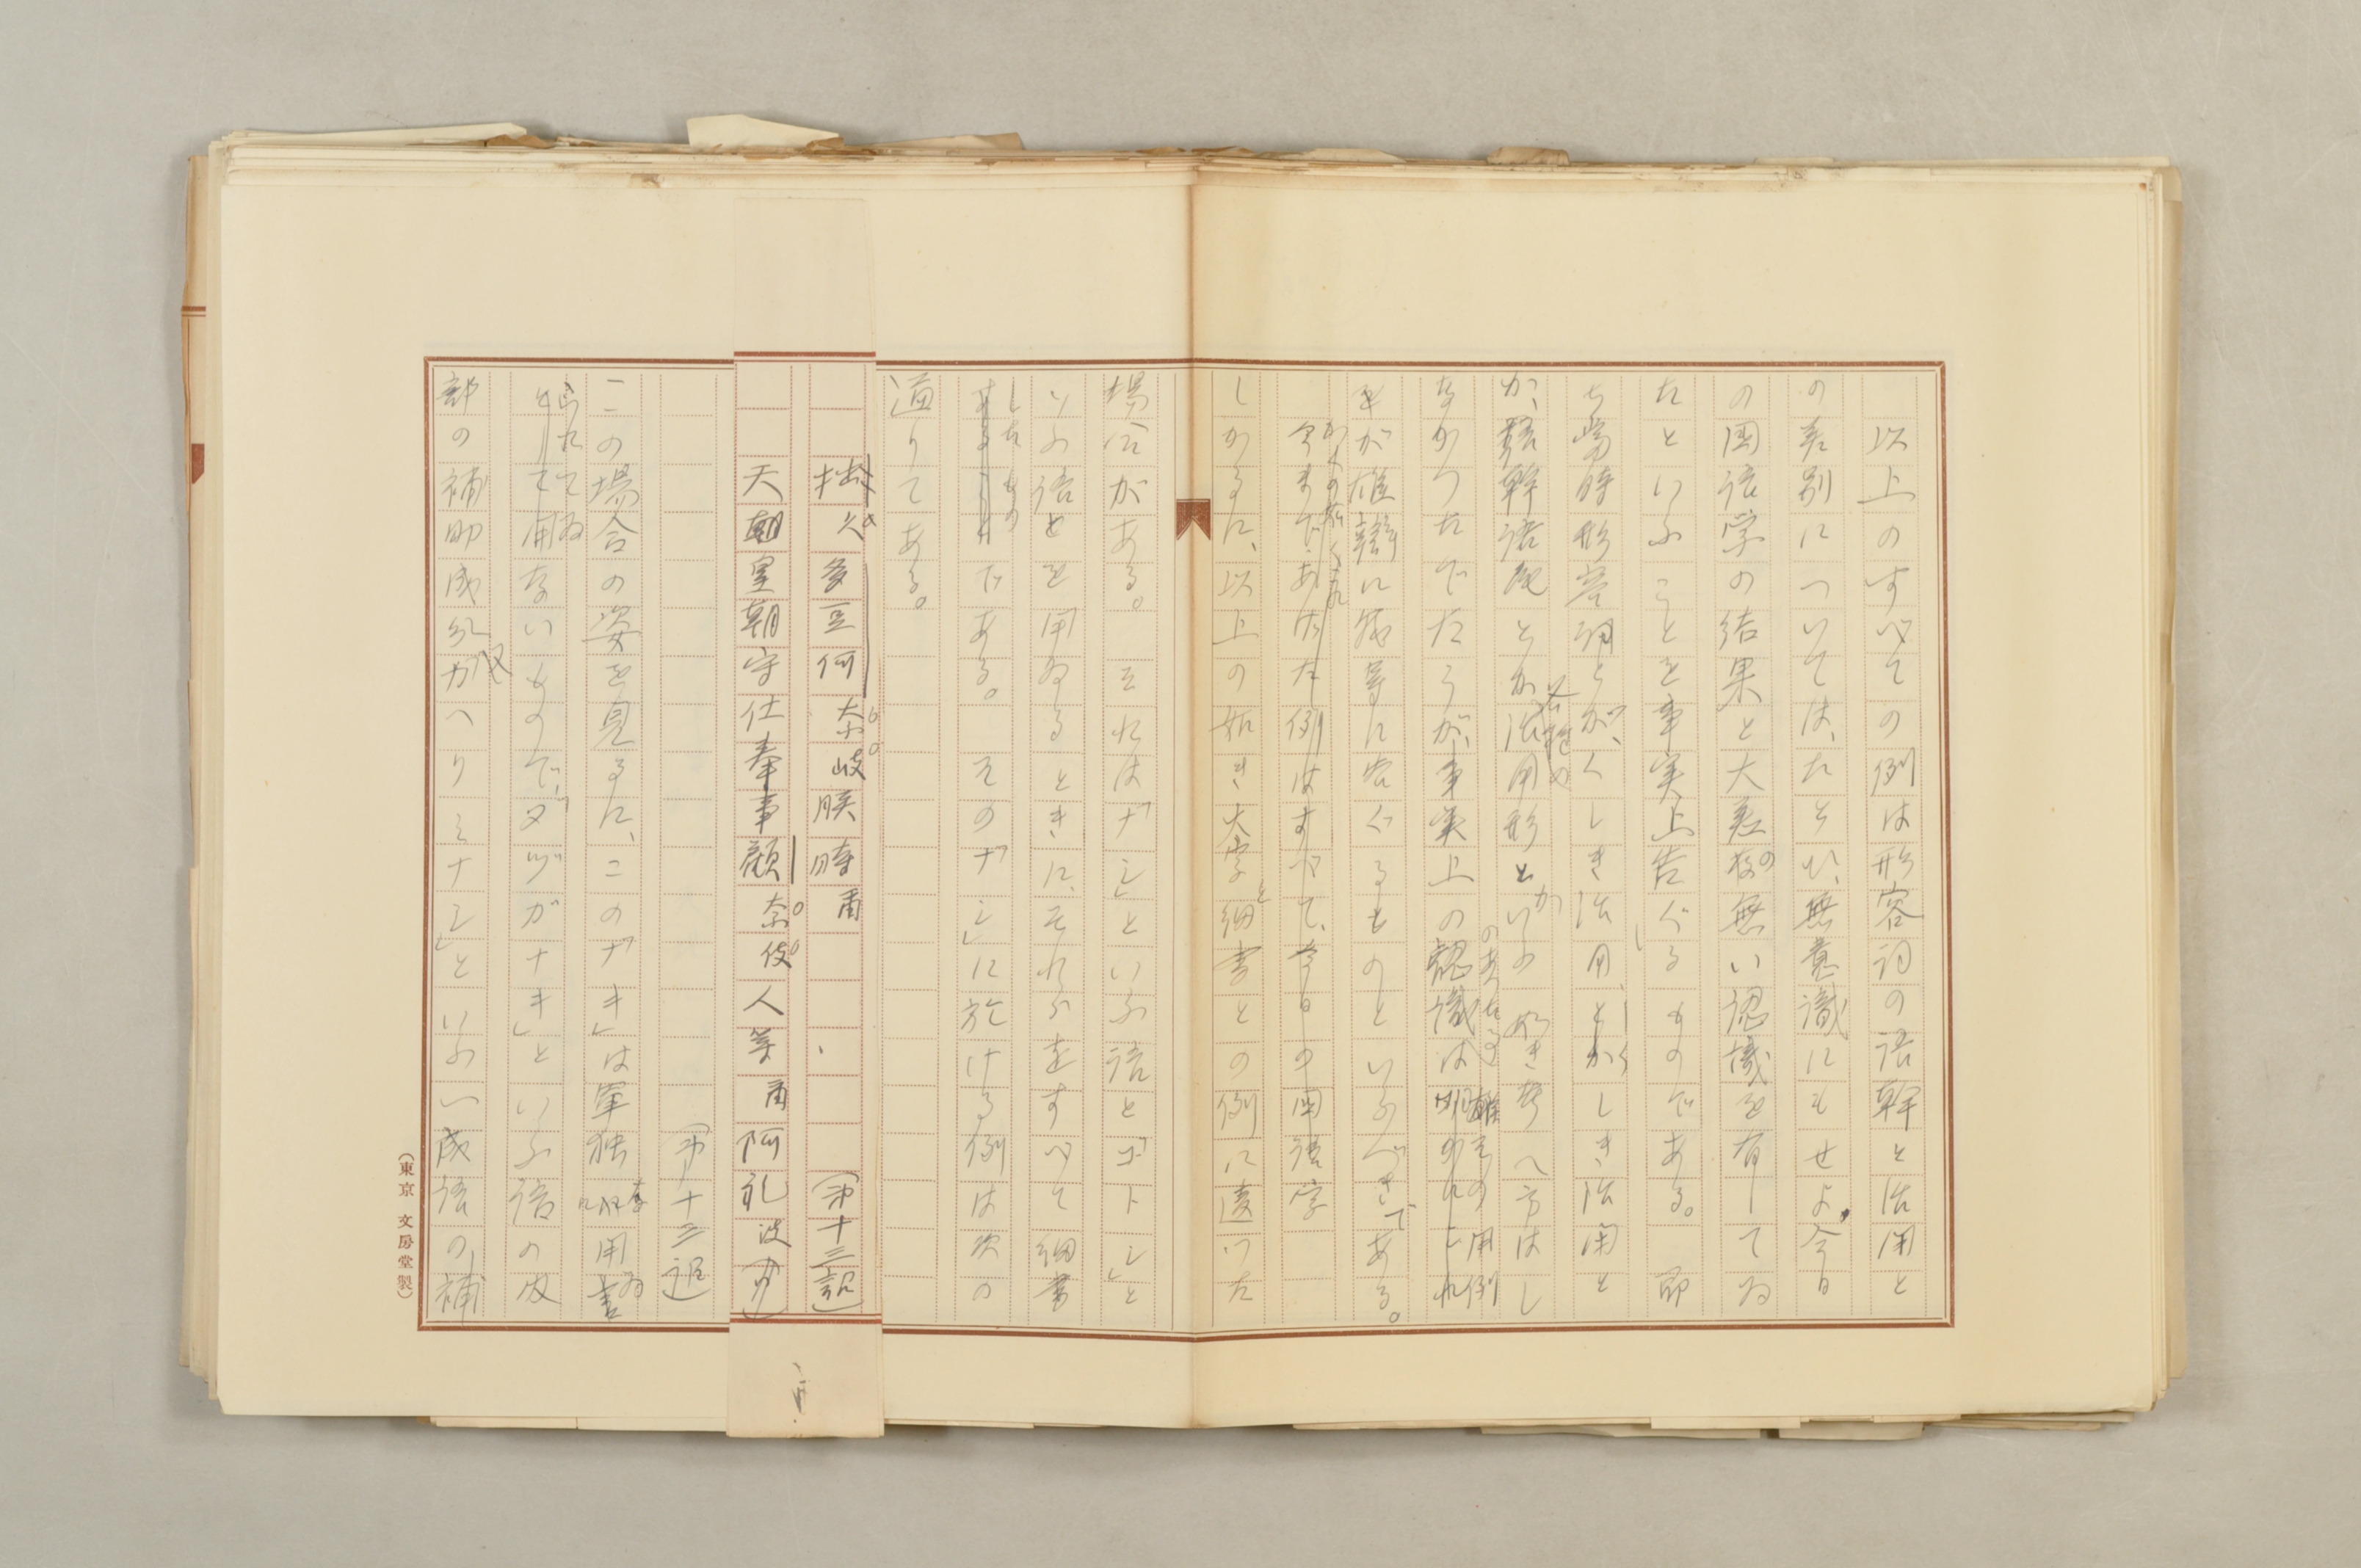 以上のすべての例は形容詞の語幹と活用と
の差別については、たとひ、無意識にもせよ、今日
の国語学の結果と大差の無い認識を有してゐ
たといふことを事実上告ぐるものである。即
ち当時形容詞とが、くしき活用、としき活用と
か、語幹語尾とか活用形とかいふ如き考へ方はし
なかつたでたらうが、事実上の認識は
その用例
これ
を が雄辯に我等に告ぐるものといふべきである。
今まであげた例はすべて、今日の国語学
しかるに、以上の如き大字と細書との例に違つた
場合がある。それは「ナシ」といふ語と「ゴトシ」と
いふ語とを用ゐるときに、それらをすべて細書
したもの
である。その「ナシ」に於ける例は次の
通りてある。
拙久多豆何奈岐朕時甫、(第十三詔)
天皇朝守仕奉事顧奈伎人等甫阿礼波
(第十三詔)
この場合の姿を見るに、この「ナキ」は単独に用ゐ
られてゐ
ないもので、「タヅガナキ」といふ語の成
部の補助成分又「カヘリミナシ」といふ一成語の補
(東京 文房堂製)